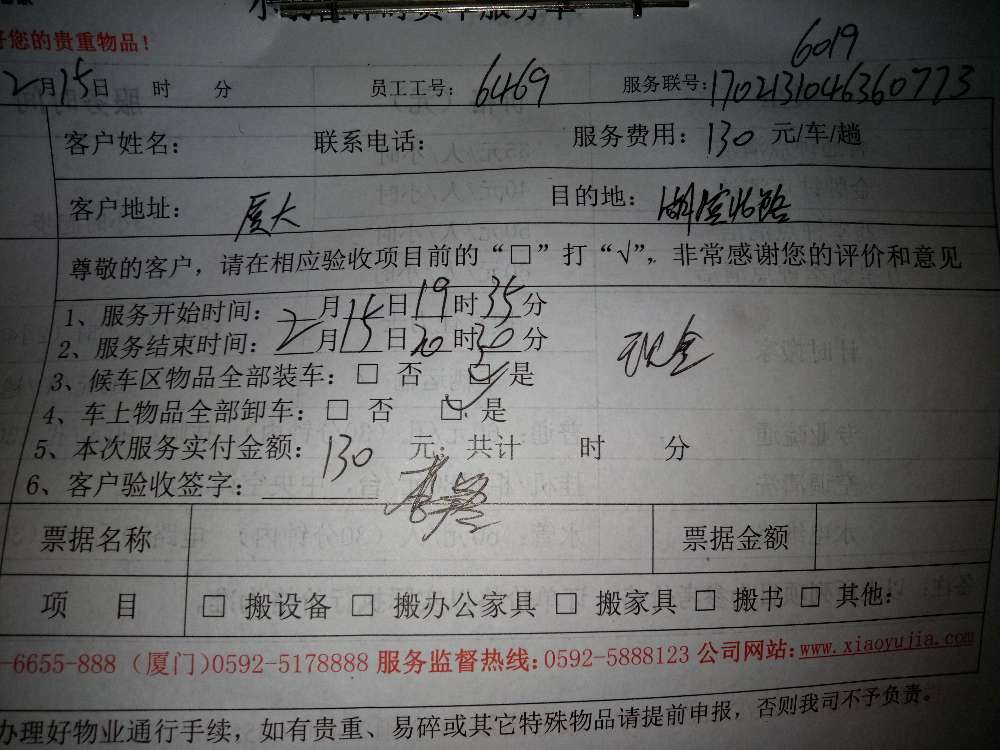 好您的贵重物品!
6019
2月15日 时 分 员工工号: 6469 服务联号: 17021310463360773
客户姓名: 联系电话: 服务费用: 130 元/车/趟
客户地址: 厦大 目的地: 湖滨北路
尊敬的客户, 请在相应验收项目前的“□”打“√”, 非常感谢您的评价和意见
1、服务开始时间: 2月15日19时35分
2、服务结束时间: 2月15日20时30分
现金
3、候车区物品全部装车: □ 否 □ 是
4、车上物品全部卸车: □ 否 □ 是
5、本次服务实付金额: 130 元; 共计 时 分
6、客户验收签字:
票据名称 票据金额
项 目 □ 搬设备 □ 搬办公家具 □ 搬家具 □ 搬书 □ 其他:
-6655-888 (厦门)0592-5178888 服务监督热线:0592-5888123 公司网站:www.xiaoyujia.com
办理好物业通行手续, 如有贵重、易碎或其它特殊物品请提前申报, 否则我司不予负责。